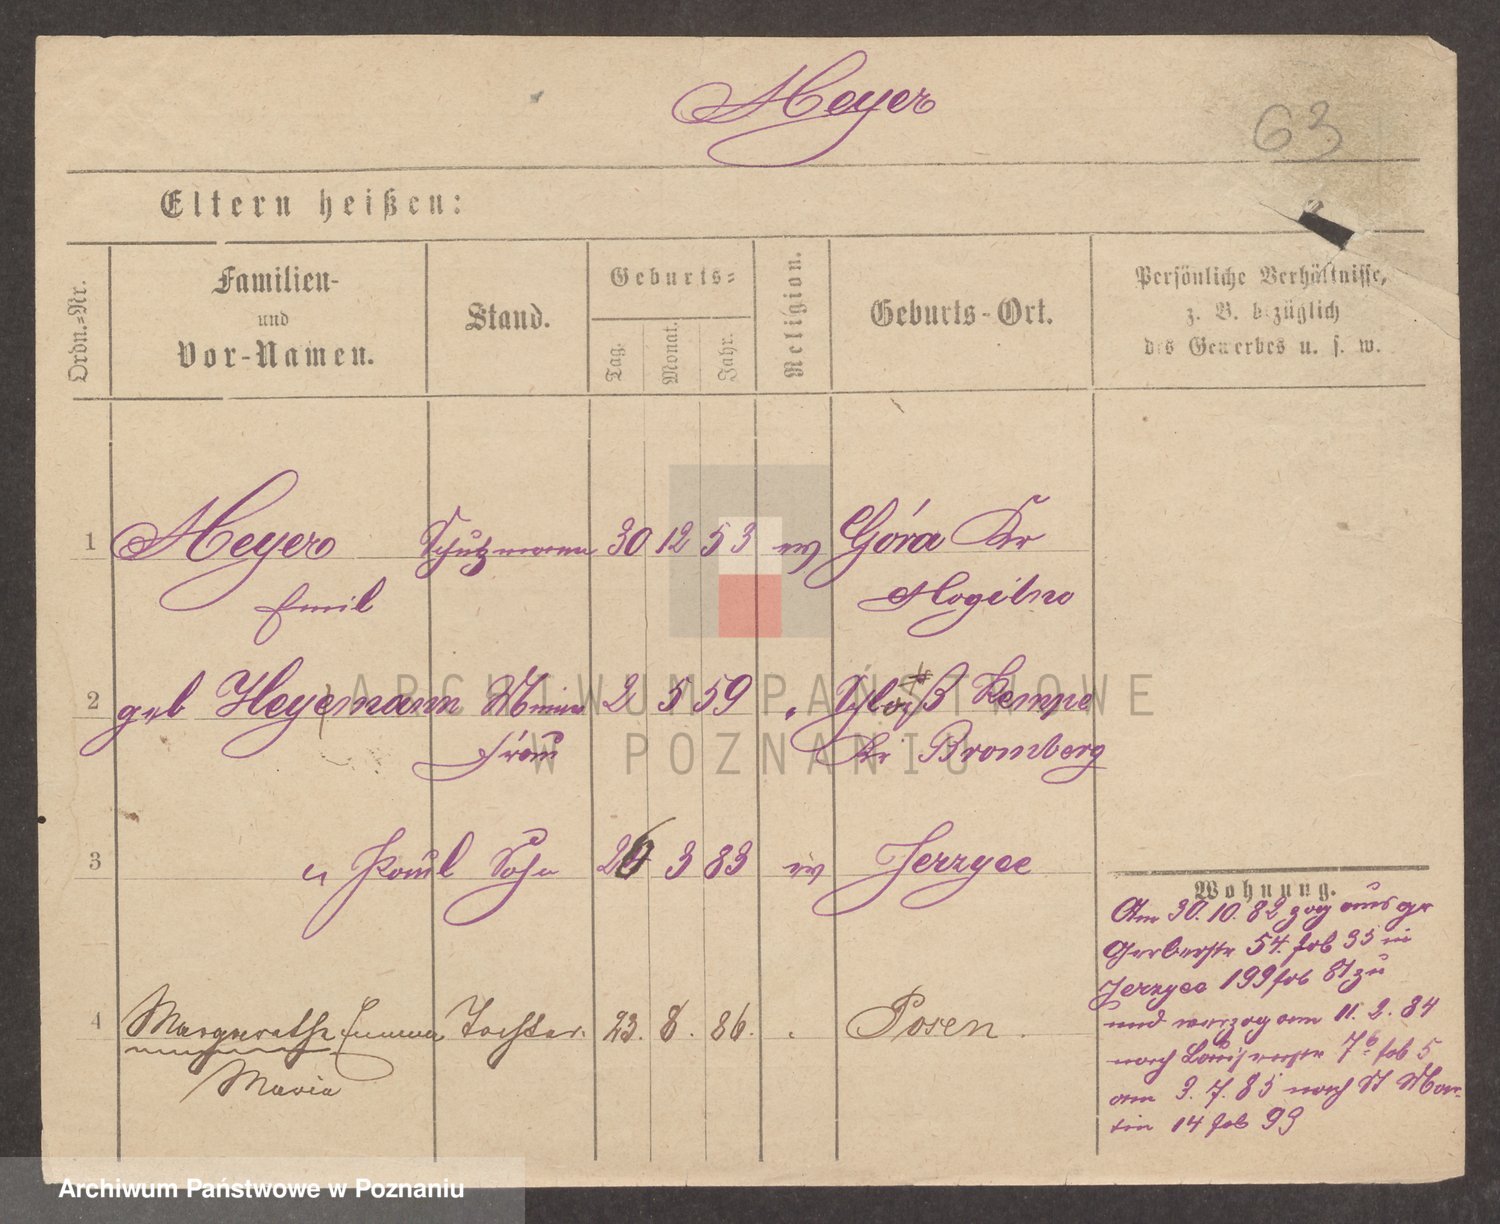 Meyer
63
Eltern heißen:
Ordn.-Nr.
Familien-
und
Vor-Namen.
Stand.
Geburts-
Tag.
Monat.
Jahr.
Religion.
Geburts-Ort.
Persönliche Verhältnisse,
z. B. bezüglich
des Gewerbes u. s. w.
1 Meyer Schutzmann 30 12 53 ev Góra Kr
Emil Mogilno
2 geb Heyemann Minna 2 5 59 " Schloß Kempe
Frau Kr Bromberg
3 " Paul Sohn 26 3 83 ev Jerzyce
4 Margarethe Emma Tochter. 23. 8. 86. . Posen.
Maria
Wohnung.
Am 30.10.82 zog aus gr
Gerberstr 54. fol 35 in
Jerzyce 199 fol 87 zu
und verzog am 11.2.84
nach Louisenstr 7b fol 5
am 3.7.85 nach St Mar-
tin 14 fol 99
ARCHIWUM PAŃSTWOWE
W POZNANIU
Archiwum Państwowe w Poznaniu